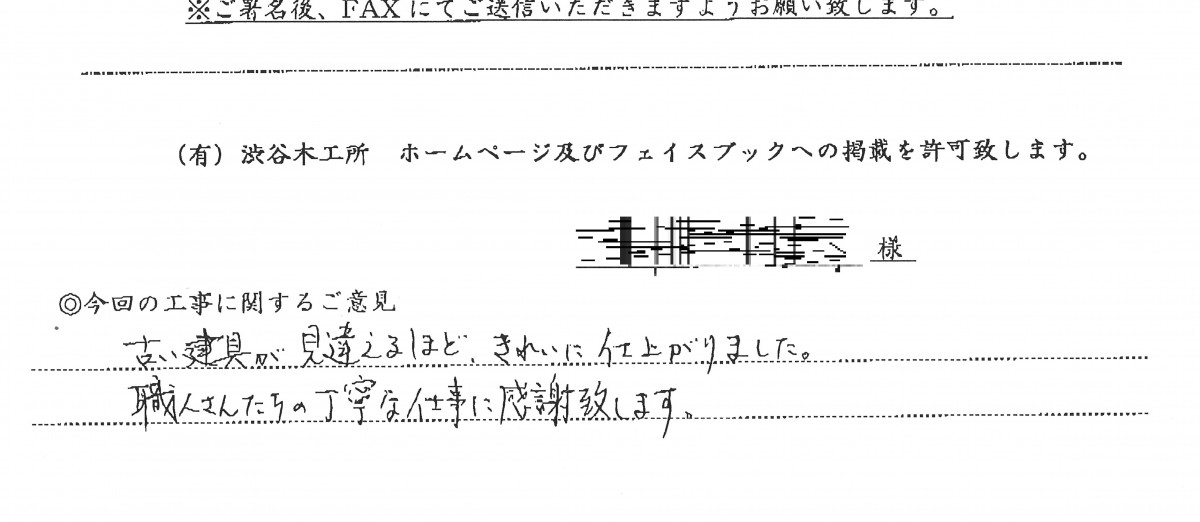 ※ご署名後、FAXにてご送信いただきますようお願い致します。
(有)渋谷木工所　ホームページ及びフェイスブックへの掲載を許可致します。
様
◎今回の工事に関するご意見
古い建具が見違えるほど、きれいに仕上がりました。
職人さんたちの丁寧な仕事に感謝致します。